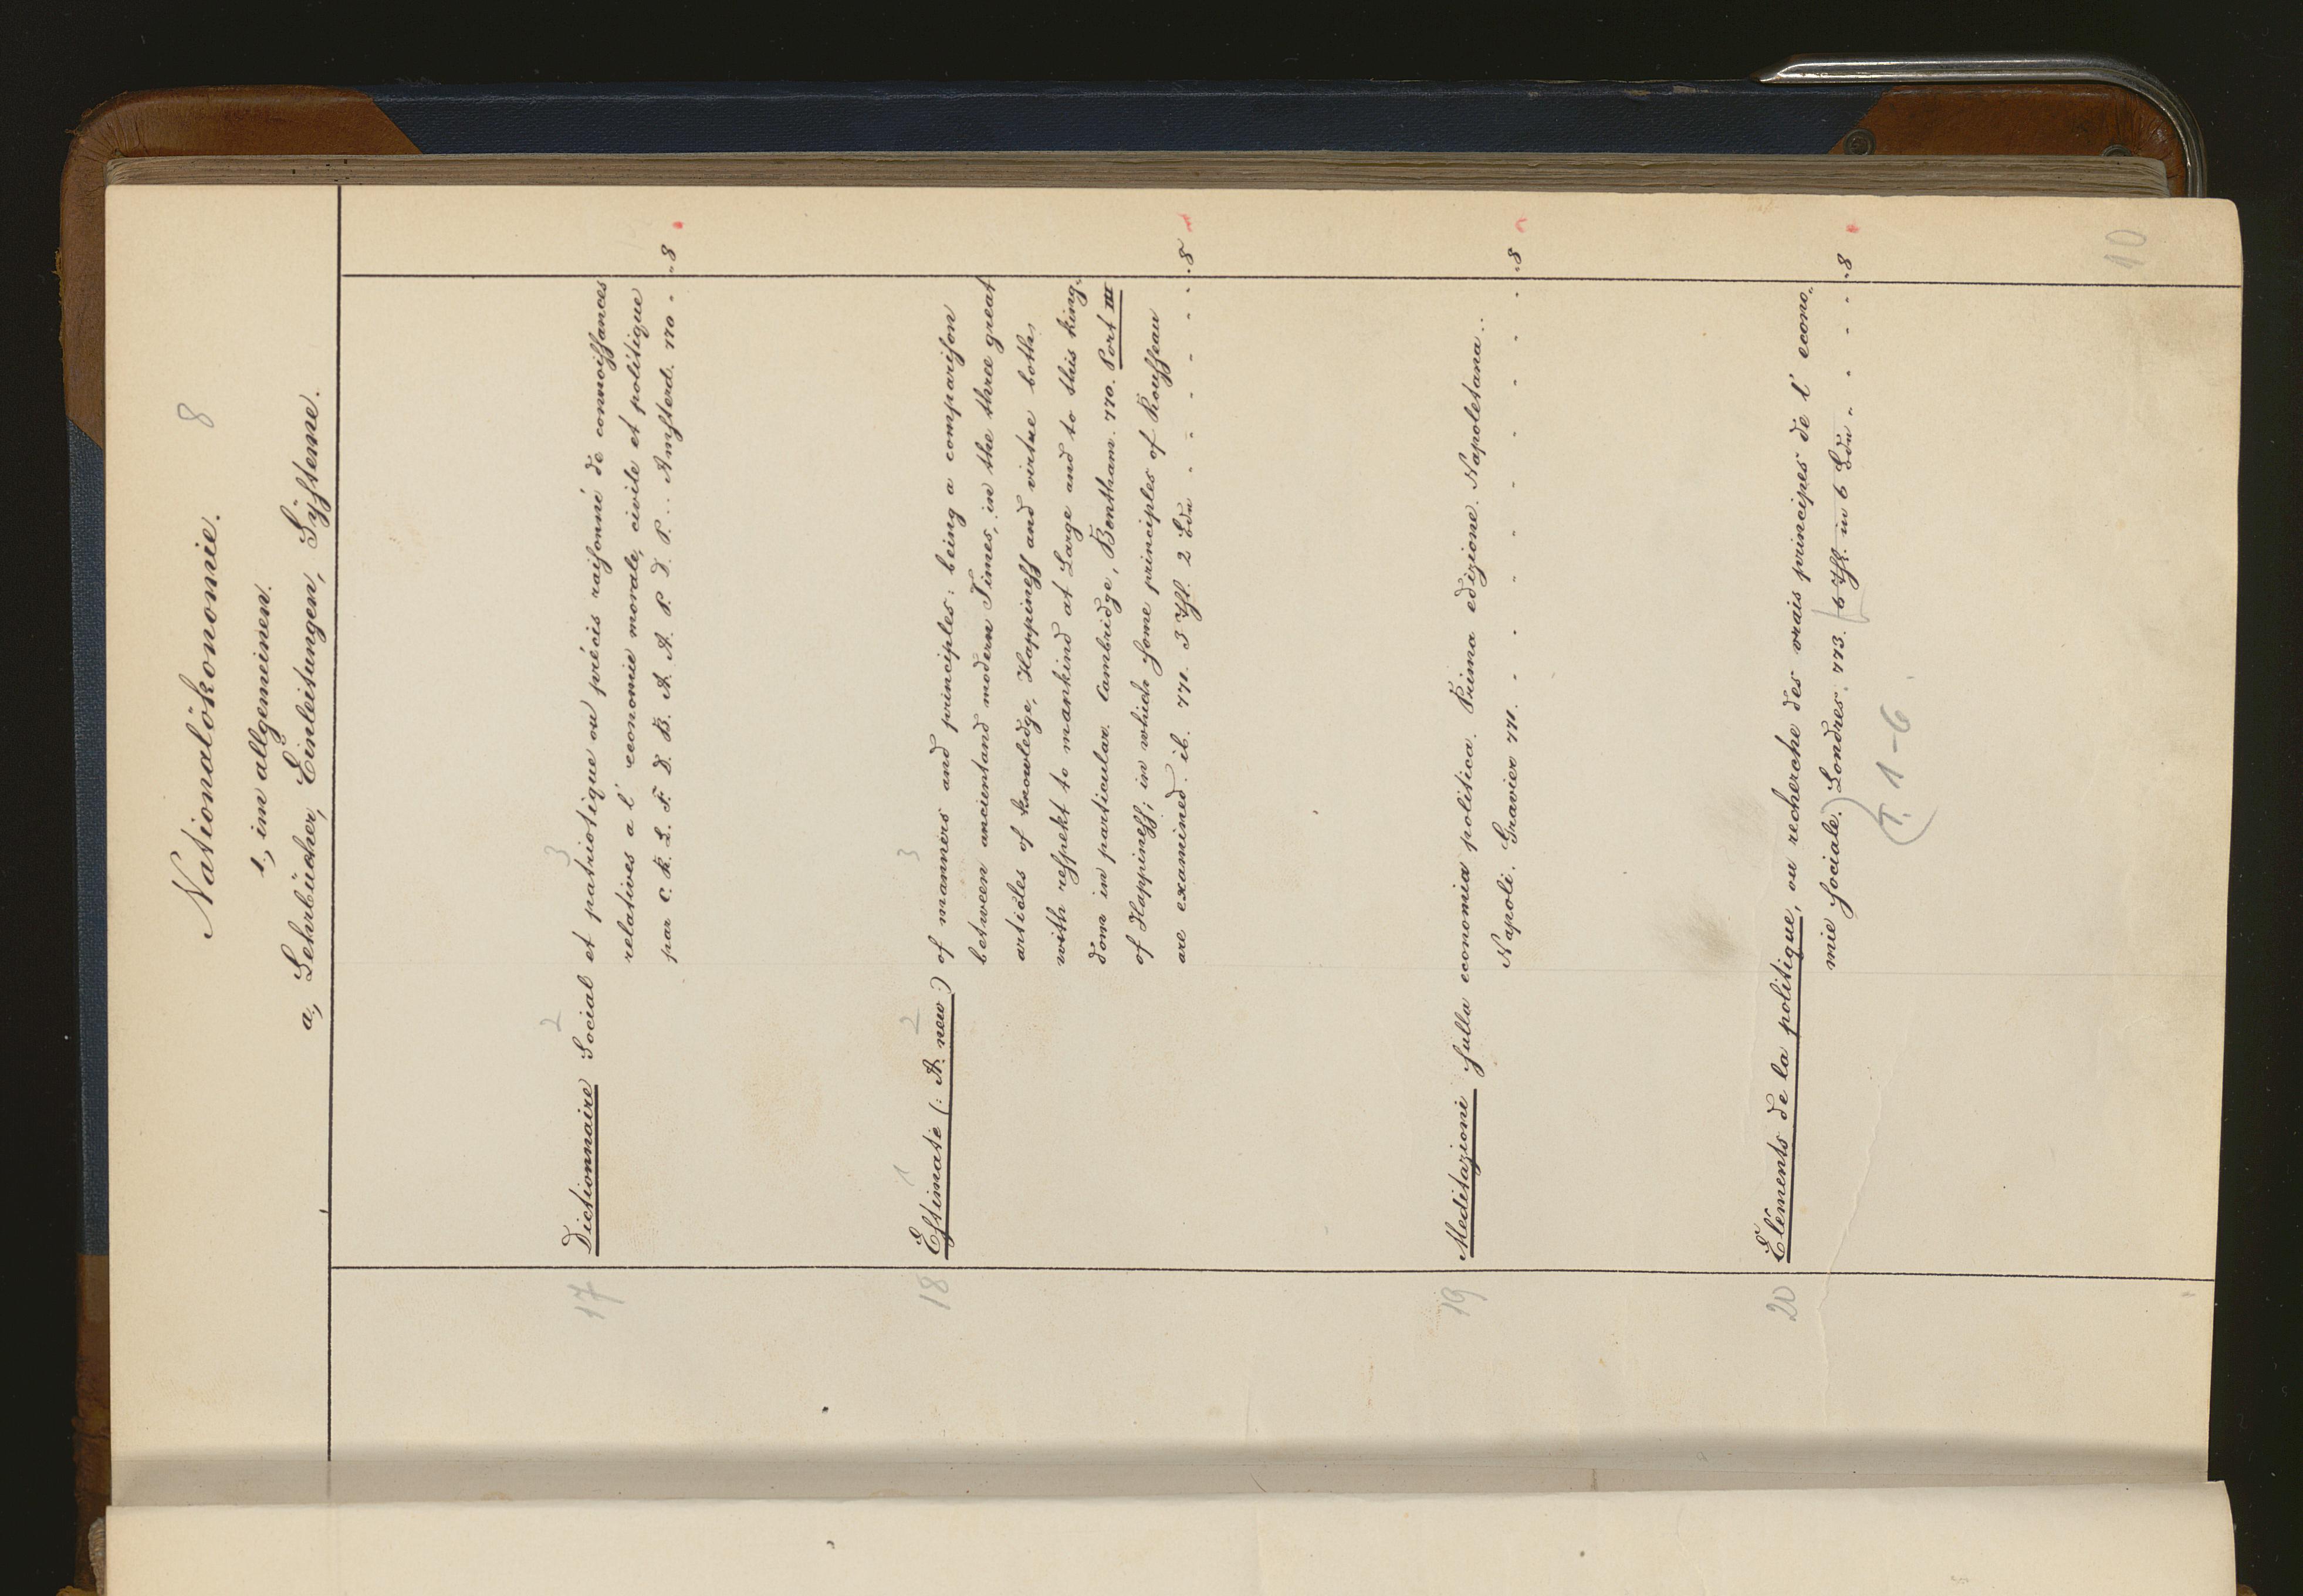 Nationalökonomie. 8
1, im allgemeinen.
a, Lehrbücher, Einleitungen, Systeme.
2 3
17 Dictionnaire Social et patriotique ou précis raisonné de connoissances
relatives a l' economie morale, civile et politique
par C. R. L. F. D. B. A. A. P. D. P. .. Amsterd. 770 - .8
1 2 3
18 Estimate (: A. new:) of manners and principles: being a comparison
between ancient and modern Times, in the three great
articles of knowledge, Happiness and virtue both,
with respekt to mankind at Large and to this king„
dom in particular. Cambridge, Bentham. 770. Part III
of Happiness; in which some principles of Rousseau
are examined. ib. 771. 3 Thl. 2 Bdn - - - - - - .8
19 Meditazioni sulla economia politica. Prima edizione. Napoletana..
Napoli. Gravier 771. - - - - - - - - - .8
20 Eléments de la politique, ou recherche des vrais principes de l' econo„
mie sociale.) Londres. 773. 6 Thl. in 6 Bdn - - - - .8
(T. 1-6
10